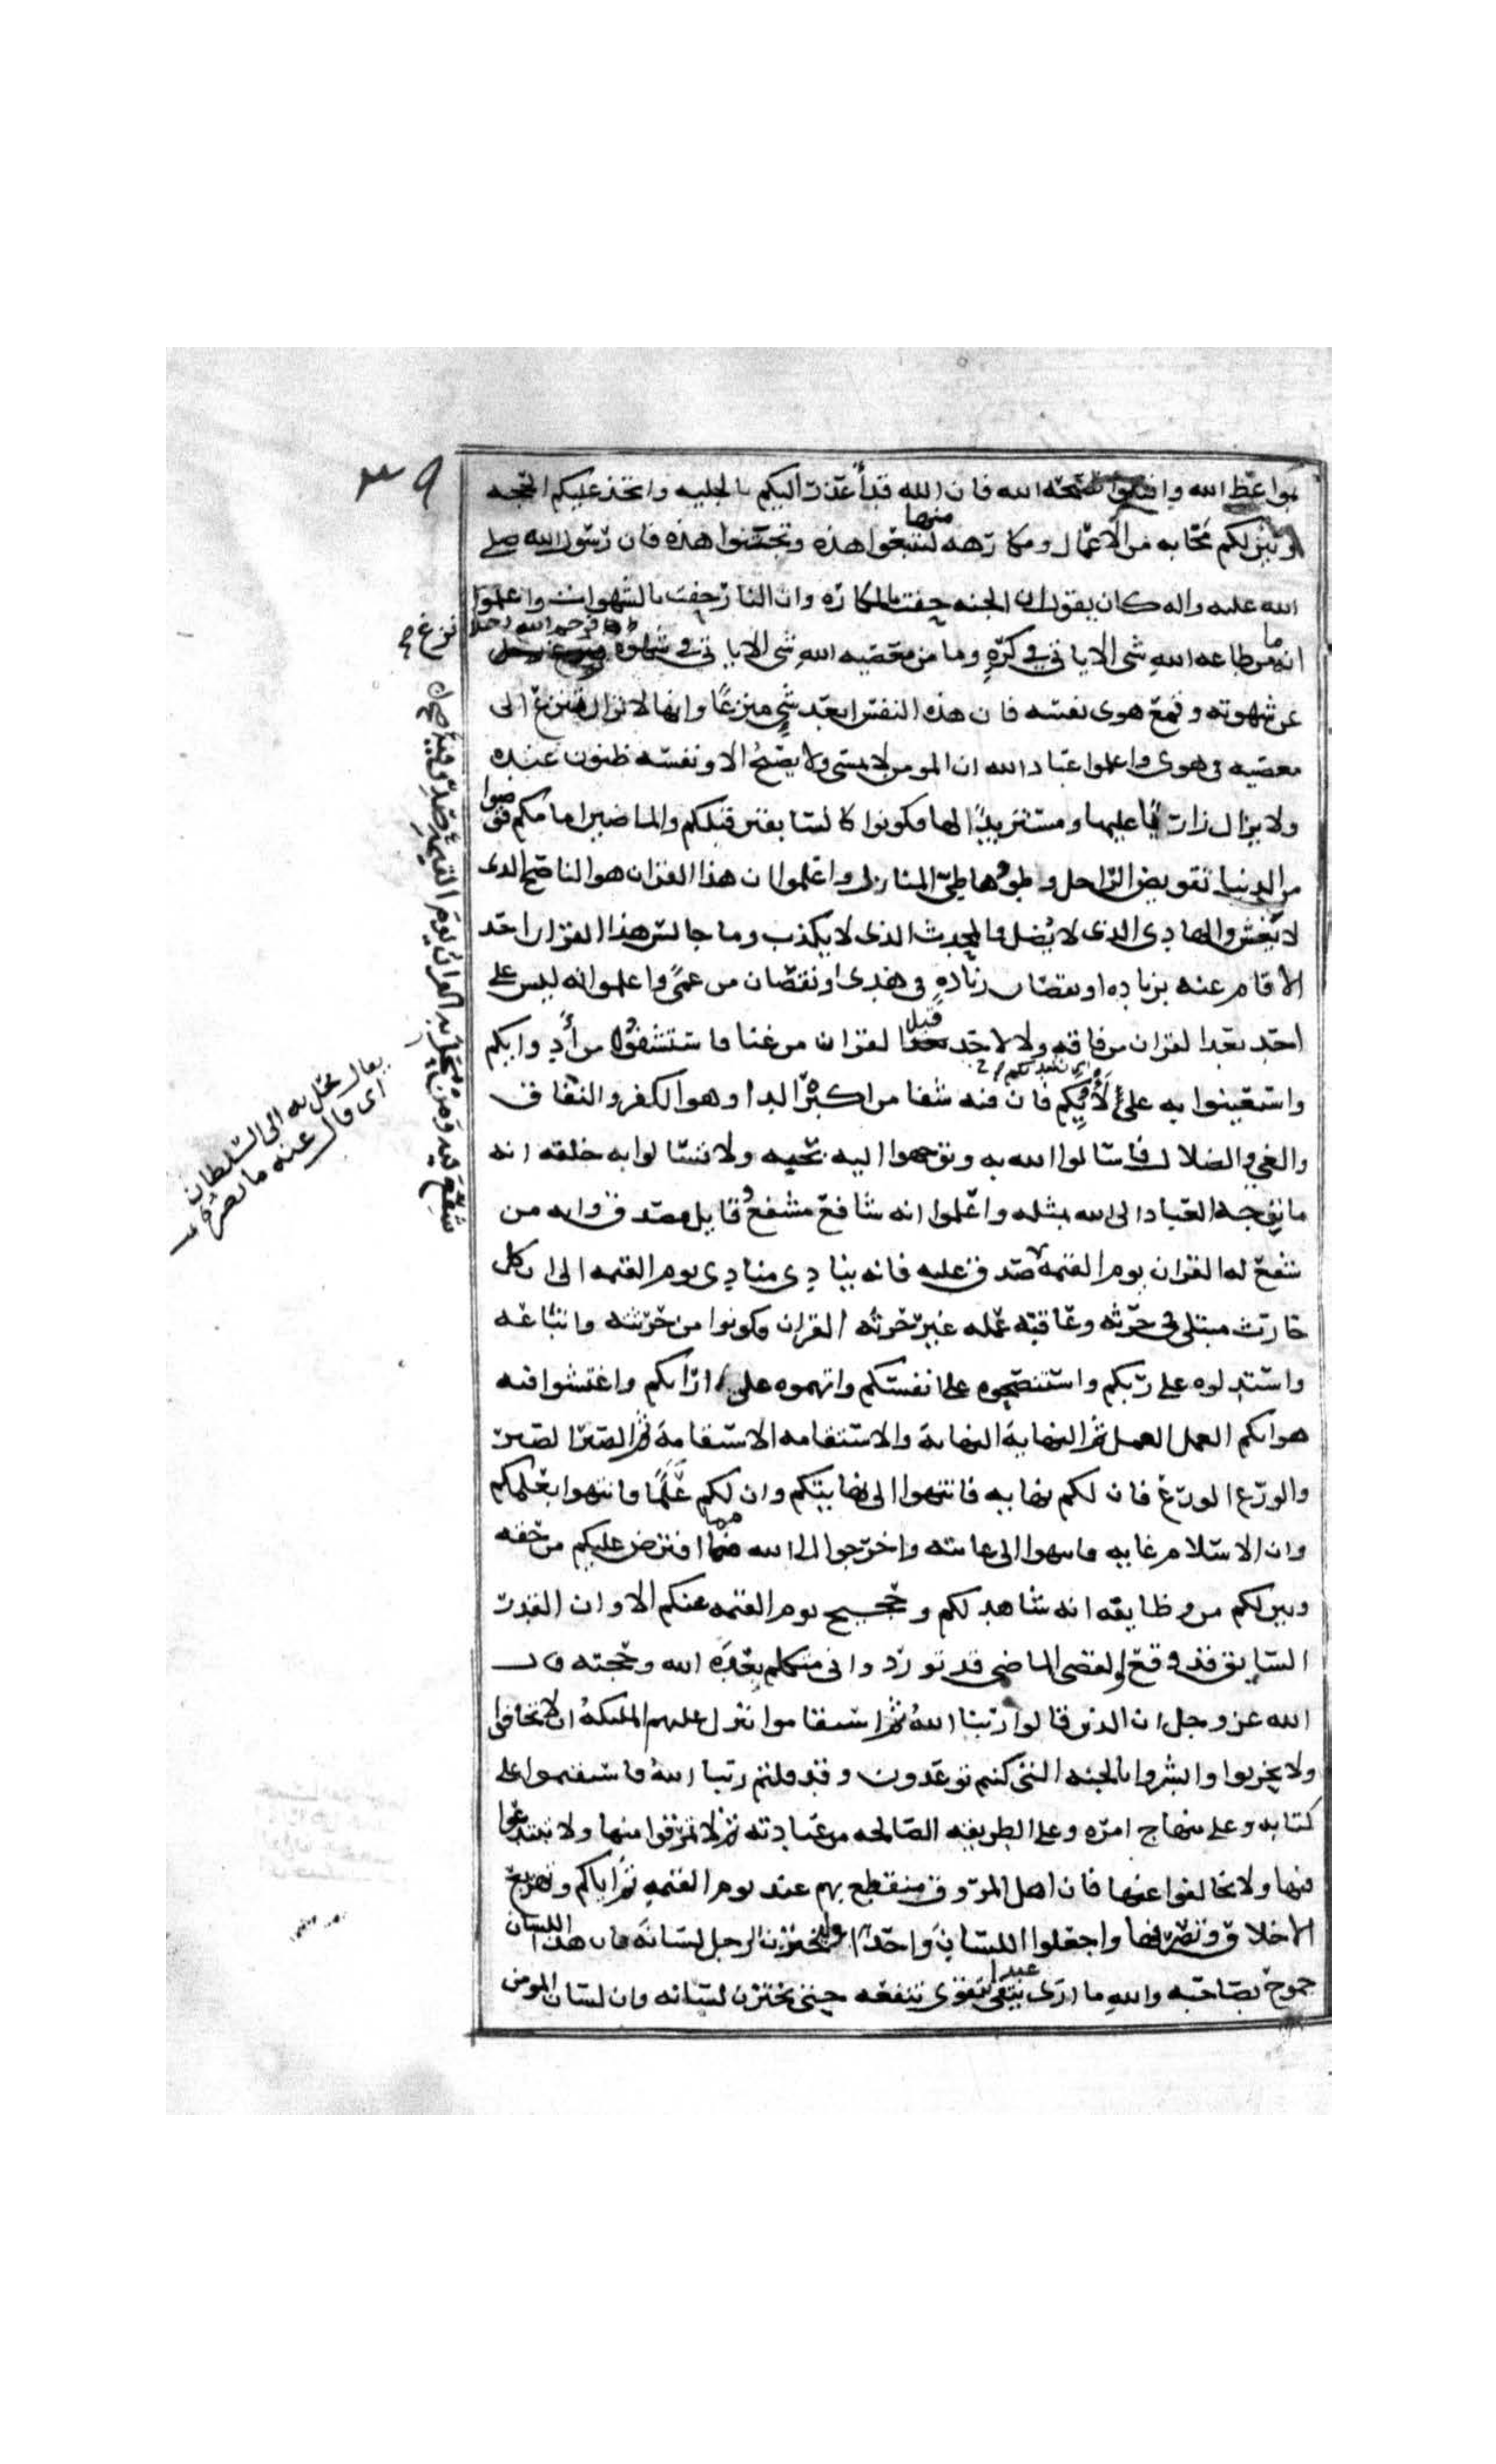 ٣٩
بمواعظ الله واقبلوا نصيحه الله فان الله قد أعذر اليكم بالجليه واتخذ عليكم الحجه
وبين لكم محابه من الاعمال ومكارهه منها لتتبعوا هذه وتجتنبوا هذه فان رسول الله صلى
الله عليه واله كان يقول ان الجنه حفت بالمكاره وان النار حفت بالشهوات واعلموا
انه ما من طاعه الله شى الا ياتى في كره وما من معصيه الله شى الا ياتى في شهوة فرحم الله رجلا نزع
عن شهوته وقمع هوى نفسه فان هذه النفس ابعد شي منزعا وانها لا تزال تنزع الى
معصيه في هوى واعلموا عباد الله ان المومن لا يمسى ولا يصبح الا ونفسه ظنون عنده
ولا يزال زاريا عليها ومستزيدا لها فكونوا كالسابقين قبلكم والماضين امامكم قوضوا
من الدنيا تقويض الراحل وطووها طي المنازل واعلموا ان هذا القران هو الناصح الذى
لا يغش والهادى الذى لا يُضل والمحدث الذى لا يكذب وما جالس هذا القران احد
الا قام عنه بزياده او نقصان زيادهٍ في هدى او نقصان من عمىً واعلموا انه ليس على
احد بعد القران من فاقه ولا لاحد قبل القران من غنا فاستشفوه من أدوايكم
واستعينوا به على لأوايكم فان فيه شفا من اكبر الدا وهو الكفر والنفاق
والغي والضلال فاسالوا الله به وتوجهوا اليه بحبه ولا تسالوا به خلقه انه
ما توجه العباد الى الله بمثله واعلموا انه شافع مشفع وقايل مصدق وانه من
شفع له القران يوم القيمه صدق عليه فانه ينادى منادى يوم القيمه الا ان كل
حارث مبتلى في حرثه وعاقبه عمله غير حرثه القران فكونوا من حرثته واتباعه
واستدلوه على ربكم واستنصحوه على انفسكم واتهموه على اراكم واغتشوا فيه
هواكم العمل العمل ثم النهاية النهاية والاستقامه الاستقامة ثم الصبر الصبر
والورع الورع فان لكم نهايه فانتهوا الى نهايتكم وان لكم علمًا فانتهوا بعلمكم
وان الاسلام غايه فانتهوا الى غايته واخرجوا الى الله مما افترض عليكم من حقه
وبين لكم من وظايفه انه شاهد لكم وحجيج يوم القيمه عنكم الا وان القدر
السابق قد وقع والقضى الماضى قد تورد وانى متكلم بعدة الله وحجته قال
الله عز وجل ان الذين قالوا ربنا اللهُ ثم استقاموا تتنزل عليهم المليكهُ ان لا تخافوا
ولا تحزنوا وابشروا بالجنه التى كنتم توعدون وقد قلتم ربنا اللهُ فاستقيموا على
كتابه وعلى منهاج امره وعلى الطريقه الصالحه من عبادته ثم لا تمرقوا منها ولا تبتدعوا
فيها ولا تخالفوا عنها فان اهل المروق منقطع بهم عند يوم القيمه ثم اياكم وتهزيع
الاخلاق وتصريفها واجعلوا اللسان واحدًا وليختزن الرجل لسانه فان هذا اللسان
جموح بصاحبه والله ما ارى عبدا يتقى تقوى تنفعه حتى يختزن لسانه وان لسان المومن
ومن محل به القران يوم القيمه صدق عليه
يقال محل به الى السلطان
اى قال عنه ما يضره